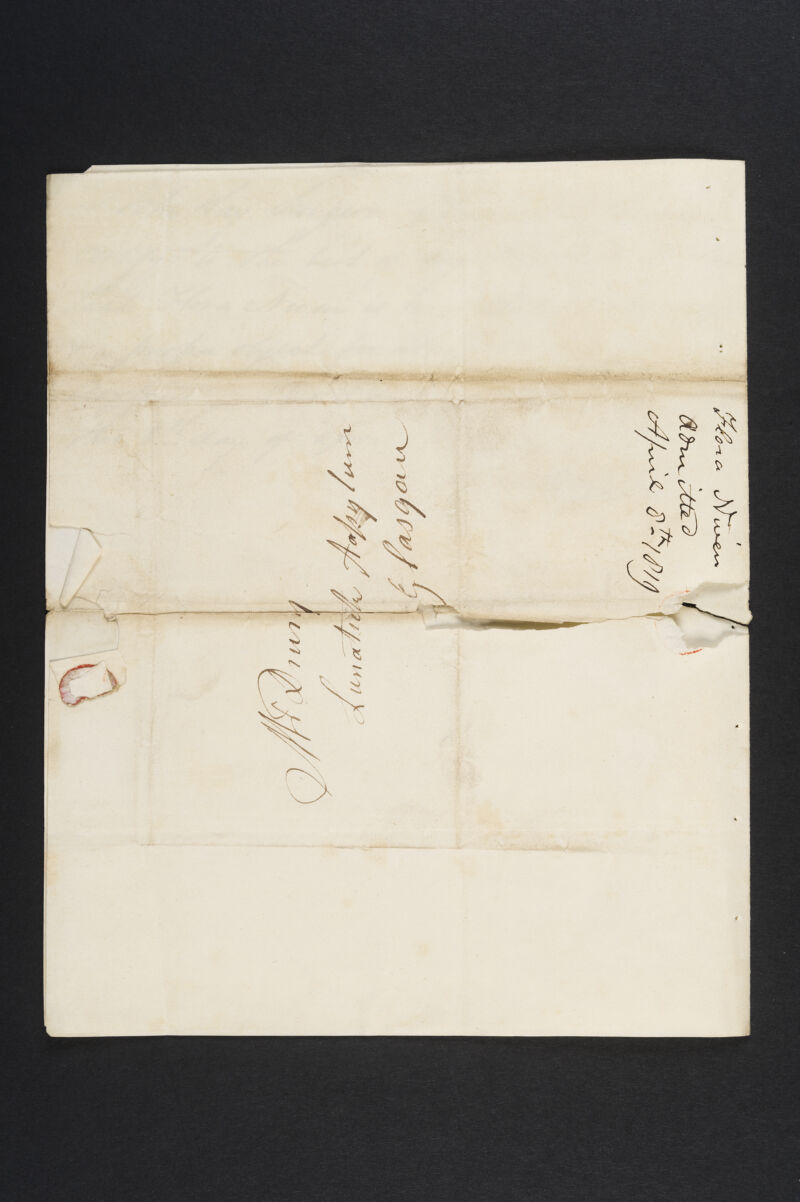 Mr Drury
Lunatick Assylum
Glasgow
Flora Niven
Admitted
April 8th 1819